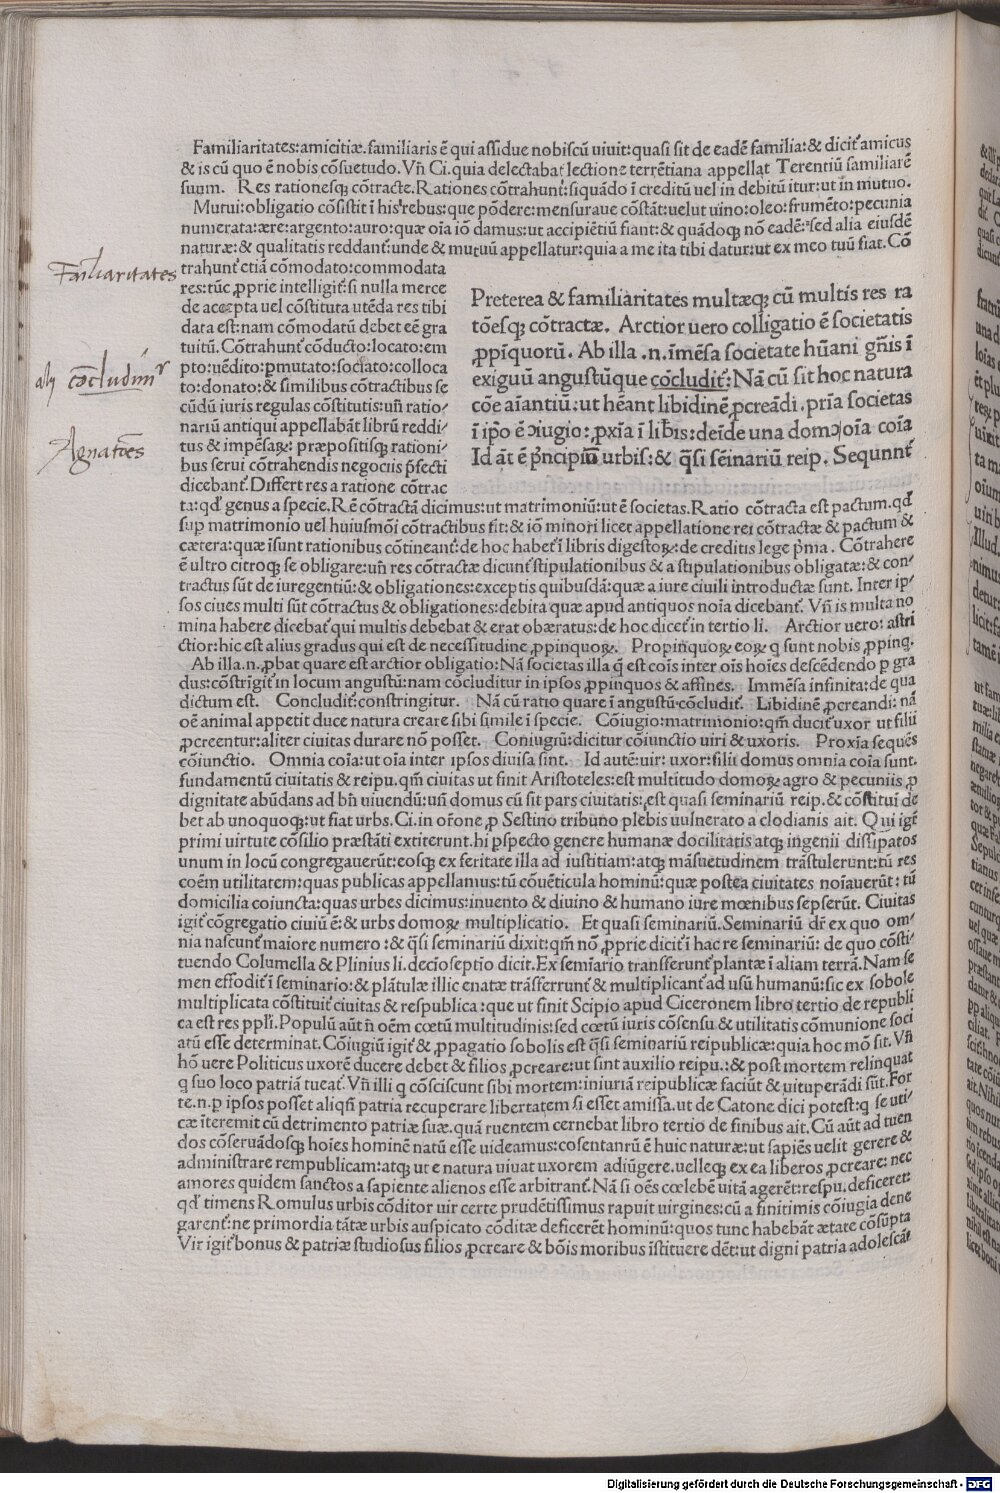 Familiaritates:amicitiæ.familiaris ē qui assidue nobiscū uiuit:quasi sit de eadē familia:& dicit᷑ amicus
& is cū quo ē nobis cōsuetudo. Vn̄ Ci.quia delectabat᷑ lectione terrētiana appellat Terentiū familiarē
suum. Res rationesq; cōtracte.Rationes cōtrahunt᷑:siquādo ī creditū uel in debitū itur:ut in mutuo.
Mutui:obligatio cōsistit ī his rebus:que pōdere:mensuraue cōstāt:uelut uino:oleo:frumēto:pecunia
numerata:ære:argento:auro:quæ oīa iō damus:ut accipiētiū fiant:& quādoq; nō eadē:sed alia eiusdē
naturæ:& qualitatis reddant᷑:unde & mutuū appellatur:quia a me ita tibi datur:ut ex meo tuū fiat.Cō
Familiaritates
trahunt᷑ etiā cōmodato:commodata
res:tūc ꝓprie intelligit᷑:si nulla merce
de accepta uel cōstituta utēda res tibi
data est:nam cōmodatū debet eē gra
tuitū.Cōtrahunt᷑ cōducto:locato:em
pto:uēdito:ꝑmutato:sociato:colloca
to:donato:& similibus cōtractibus se
cūdū iuris regulas cōstitutis:un̄ ratio/
nariū antiqui appellabāt librū reddi/
tus & impēsaꝝ: præpositisq; rationi/
bus serui cōtrahendis negociis p̄fecti
dicebant᷑.Differt res a ratione cōtrac
Preterea & familiaritates multæq; cū multis res ra
tōesq; cōtractæ. Arctior uero colligatio ē societatis
ꝓpīquorū. Ab illa .n. īmēsa societate hūani gn̄is ī
exiguū angustūque cōcludit᷑: Nā cū sit hoc natura
cōe aīantiū:ut hēant libidinē ꝓcreādi.pria societas
ī ip̄o ē ↄiugio:ꝓxīa ī lib̄is:deīde una domↄ:oīa coīa
Id āt ē p̄ncipiū urbis:& q̄si sēinariū reip. Sequnnt᷑
aly cōcludim᷑r
Agnatōes
ta:qd᷑ genus a specie.Rē cōtractā dicimus:ut matrimoniū:ut ē societas.Ratio cōtracta est pactum.qd᷑
sup matrimonio uel huiusmōi cōtractibus fit:& iō minori licet appellatione rei cōtractæ & pactum &
cætera:quæ īsunt rationibus cōtineant᷑:de hoc habet᷑ ī libris digestoꝝ:de creditis lege p̄ma. Cōtrahere
ē ultro citroq; se obligare:un̄ res cōtractæ dicunt᷑ stipulationibus & a stipulationibus obligatæ:& con/
tractus sūt de iuregentiū:& obligationes:exceptis quibusdā:quæ a iure ciuili introductæ sunt. Inter ip/
sos ciues multi sūt cōtractus & obligationes:debita quæ apud antiquos noīa dicebant᷑. Vn̄ is multa no
mina habere dicebat᷑ qui multis debebat & erat obæratus:de hoc dicet᷑ in tertio li. Arctior uero: astri
ctior:hic est alius gradus qui est de necessitudine ꝓpinquoꝝ. Propinquoꝝ eoꝝ q sunt nobis ꝓpinq.
Ab illa.n.ꝓbat quare est arctior obligatio:Nā societas illa q̄ est coīs inter oīs hoīes descēdendo p gra
dus:cōstrīgit᷑ in locum angustū:nam cōcluditur in ipsos ꝓpinquos & affines. Immēsa infinita:de qua
dictum est. Concludit᷑:constringitur. Nā cū ratio quare ī angustū cōcludit᷑. Libidinē ꝓcreandi: nā
oē animal appetit duce natura creare sibi simile ī specie. Cōiugio:matrimonio:qm̄ ducit᷑ uxor ut filii
ꝓcreentur:aliter ciuitas durare nō posset. Coniugiū:dicitur cōiunctio uiri & uxoris. Proxīa sequēs
cōiunctio. Omnia coīa:ut oīa inter ipsos diuisa sint. Id autē:uir: uxor:filii domus omnia coīa sunt.
fundamentū ciuitatis & reipu.qm̄ ciuitas ut finit Aristoteles:est multitudo domoꝝ agro & pecuniis ꝓ
dignitate abūdans ad bn̄ uiuendū:un̄ domus cū sit pars ciuitatis:est quasi seminariū reip.& cōstitui de
bet ab unoquoq;:ut fiat urbs.Ci.in or̄one ꝓ Sestino tribuno plebis uulnerato a clodianis ait. Qui igit᷑
primi uirtute cōsilio præstāti extiterunt.hi pspecto genere humanæ docilitatis atq; ingenii dissipatos
unum in locū congregauerūt:eosq; ex feritate illa ad iustitiam:atq; māsuetudinem trāstulerunt:tū res
coēm utilitatem:quas publicas appellamus:tū cōuēticula hominū:quæ postea ciuitates noīauerūt: tū
domicilia coiuncta:quas urbes dicimus:inuento & diuino & humano iure mœnibus sepserūt. Ciuitas
igit᷑ cōgregatio ciuiū ē:& urbs domoꝝ multiplicatio. Et quasi seminariū.Seminariū dr̄ ex quo om/
nia nascunt᷑ maiore numero :& q̄si seminariū dixit:qm̄ nō ꝓprie dicit᷑ ī hac re seminariū: de quo cōsti/
tuendo Columella & Plinius li.decīoseptio dicit.Ex semīario transferunt᷑ plantæ ī aliam terrā.Nam se
men effodit᷑ ī seminario:& plātulæ illic enatæ trāsferrunt᷑ & multiplicant᷑ ad usū humanū:sic ex sobole
multiplicata cōstituit᷑ ciuitas & respublica :que ut finit Scipio apud Ciceronem libro tertio de republi
ca est res ppl̄i.Populū aūt n̄ oēm cœtū multitudinis:sed cœtū iuris cōsensu & utilitatis cōmunione soci
atū esse determinat.Cōiugiū igit᷑ & ꝓpagatio sobolis est q̄si seminariū reipublicæ:quia hoc mō sit.Vn̄
hō uere Politicus uxorē ducere debet & filios ꝓcreare:ut sint auxilio reipu.:& post mortem relinquat
q suo loco patriā tueat᷑.Vn̄ illi q cōsciscunt sibi mortem:iniuriā reipublicæ faciūt & uituperādi sūt.For
te.n.p ipsos posset aliqn̄ patria recuperare libertatem si esset amissa.ut de Catone dici potest:q se uti/
cæ īteremit cū detrimento patriæ suæ.quā ruentem cernebat libro tertio de finibus ait.Cū aūt ad tuen
dos cōseruādosq; hoīes hominē natū esse uideamus:cosentanrū ē huic naturæ:ut sapiēs uelit gerere &
administrare rempublicam:atq; ut e natura uiuat uxorem adiūgere.uelleq; ex ea liberos ꝓcreare: nec
amores quidem sanctos a sapiente alienos esse arbitrant᷑.Nā si oēs cœlebē uitā agerēt:respu.deficeret:
qd᷑ timens Romulus urbis cōditor uir certe prudētissimus rapuit uirgines:cū a finitimis cōiugia dene
garent᷑:ne primordia tātæ urbis auspicato cōditæ deficerēt hominū:quos tunc habebāt ætate cōsūpta
Vir igit᷑ bonus & patriæ studiosus filios ꝓcreare & bōis moribus īstituere dēt:ut digni patria adolescāt
Digitalisierung gefördert durch die Deutsche Forschungsgemeinschaft - DFG